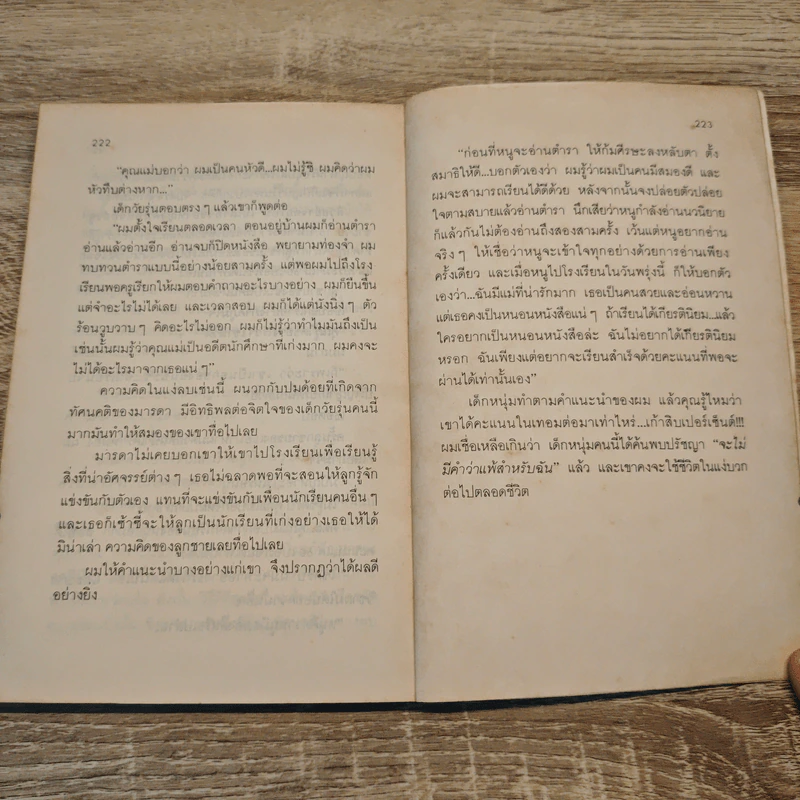 222
“คุณแม่บอกว่า ผมเป็นคนหัวดี...ผมไม่รู้ซิ ผมคิดว่าผม
หัวทึบต่างหาก...”
เด็กวัยรุ่นตอบตรง ๆ แล้วเขาก็พูดต่อ
“ผมตั้งใจเรียนตลอดเวลา ตอนอยู่บ้านผมก็อ่านตำรา
อ่านแล้วอ่านอีก อ่านจบก็ปิดหนังสือ พยายามท่องจำ ผม
ทบทวนตำราแบบนี้อย่างน้อยสามครั้ง แต่พอผมไปถึงโรง
เรียนพอครูเรียกให้ผมตอบคำถามอะไรบางอย่าง ผมก็ยืนขึ้น
แต่จำอะไรไม่ได้เลย และเวลาสอบ ผมก็ได้แต่นั่งนิ่ง ๆ ตัว
ร้อนวูบวาบ ๆ คิดอะไรไม่ออก ผมก็ไม่รู้ว่าทำไมมันถึงเป็น
เช่นนั้นผมรู้ว่าคุณแม่เป็นอดีตนักศึกษาที่เก่งมาก ผมคงจะ
ไม่ได้อะไรมาจากเธอแน่ ๆ”
ความคิดในแง่ลบเช่นนี้ ผนวกกับปมด้อยที่เกิดจาก
ทัศนคติของมารดา มีอิทธิพลต่อจิตใจของเด็กวัยรุ่นคนนี้
มากมันทำให้สมองของเขาทื่อไปเลย
มารดาไม่เคยบอกเขาให้เขาไปโรงเรียนเพื่อเรียนรู้
สิ่งที่น่าอัศจรรย์ต่าง ๆ เธอไม่ฉลาดพอที่จะสอนให้ลูกรู้จัก
แข่งขันกับตัวเอง แทนที่จะแข่งขันกับเพื่อนนักเรียนคนอื่น ๆ
และเธอก็เซ้าซี้จะให้ลูกเป็นนักเรียนที่เก่งอย่างเธอให้ได้
มิน่าเล่า ความคิดของลูกชายเลยทื่อไปเลย
ผมให้คำแนะนำบางอย่างแก่เขา จึงปรากฏว่าได้ผลดี
อย่างยิ่ง
223
“ก่อนที่หนูจะอ่านตำรา ให้ก้มศีรษะลงหลับตา ตั้ง
สมาธิให้ดี...บอกตัวเองว่า ผมรู้ว่าผมเป็นคนมีสมองดี และ
ผมจะสามารถเรียนได้ดีด้วย หลังจากนั้นจงปล่อยตัวปล่อย
ใจตามสบายแล้วอ่านตำรา นึกเสียว่าหนูกำลังอ่านนวนิยาย
ก็แล้วกันไม่ต้องอ่านถึงสองสามครั้ง เว้นแต่หนูอยากอ่าน
จริง ๆ ให้เชื่อว่าหนูจะเข้าใจทุกอย่างด้วยการอ่านเพียง
ครั้งเดียว และเมื่อหนูไปโรงเรียนในวันพรุ่งนี้ ก็ให้บอกตัว
เองว่า...ฉันมีแม่ที่น่ารักมาก เธอเป็นคนสวยและอ่อนหวาน
แต่เธอคงเป็นหนอนหนังสือแน่ ๆ ถ้าเรียนได้เกียรตินิยม...แล้ว
ใครอยากเป็นหนอนหนังสือล่ะ ฉันไม่อยากได้เกียรตินิยม
หรอก ฉันเพียงแต่อยากจะเรียนสำเร็จด้วยคะแนนที่พอจะ
ผ่านได้เท่านั้นเอง”
เด็กหนุ่มทำตามคำแนะนำของผม แล้วคุณรู้ไหมว่า
เขาได้คะแนนในเทอมต่อมาเท่าไหร่...เก้าสิบเปอร์เซ็นต์!!!
ผมเชื่อเหลือเกินว่า เด็กหนุ่มคนนี้ได้ค้นพบปรัชญา “จะไม่
มีคำว่าแพ้สำหรับฉัน” แล้ว และเขาคงจะใช้ชีวิตในแง่บวก
ต่อไปตลอดชีวิต